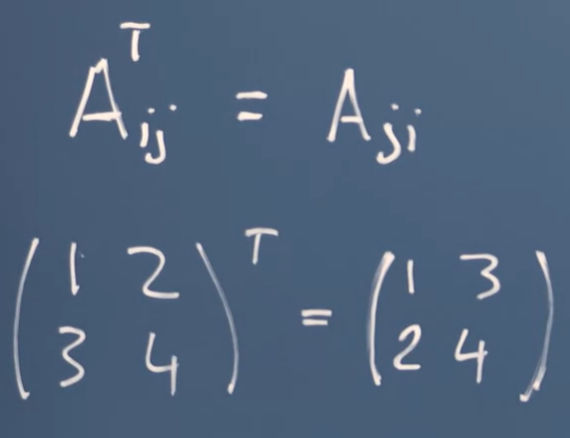 A^T_{ij} = A_{ji}
(1 2
3 4)^T = (1 3
2 4)